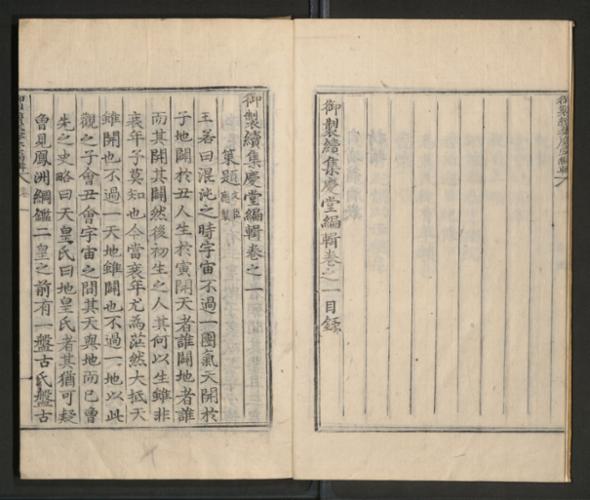 御製續集慶堂編輯卷之一目録
御製續集慶堂編輯卷之一
策題
王若曰混沌之時宇宙不過一團氣天開於
子地闢於丑人生於寅開天者誰闢地者誰
而其開其闢然後初生之人其何以生雖非
衰年子莫知也今當衰年尤為茫然大抵天
雖開也不過一天地雖闢也不過一地以此
觀之子會丑會宇宙之間其天與地而已曾
先之史略曰天皇氏曰地皇氏者其猶可疑
曾見鳳洲綱鑑二皇之前有一盤古氏盤古